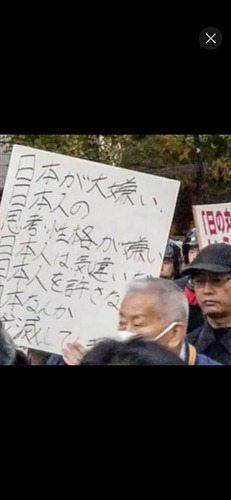 日本が大嫌い.
日本人の
思考・性格が嫌い
日本人は気違いだ
日本人を許さな
日本なんか
して
「日の丸